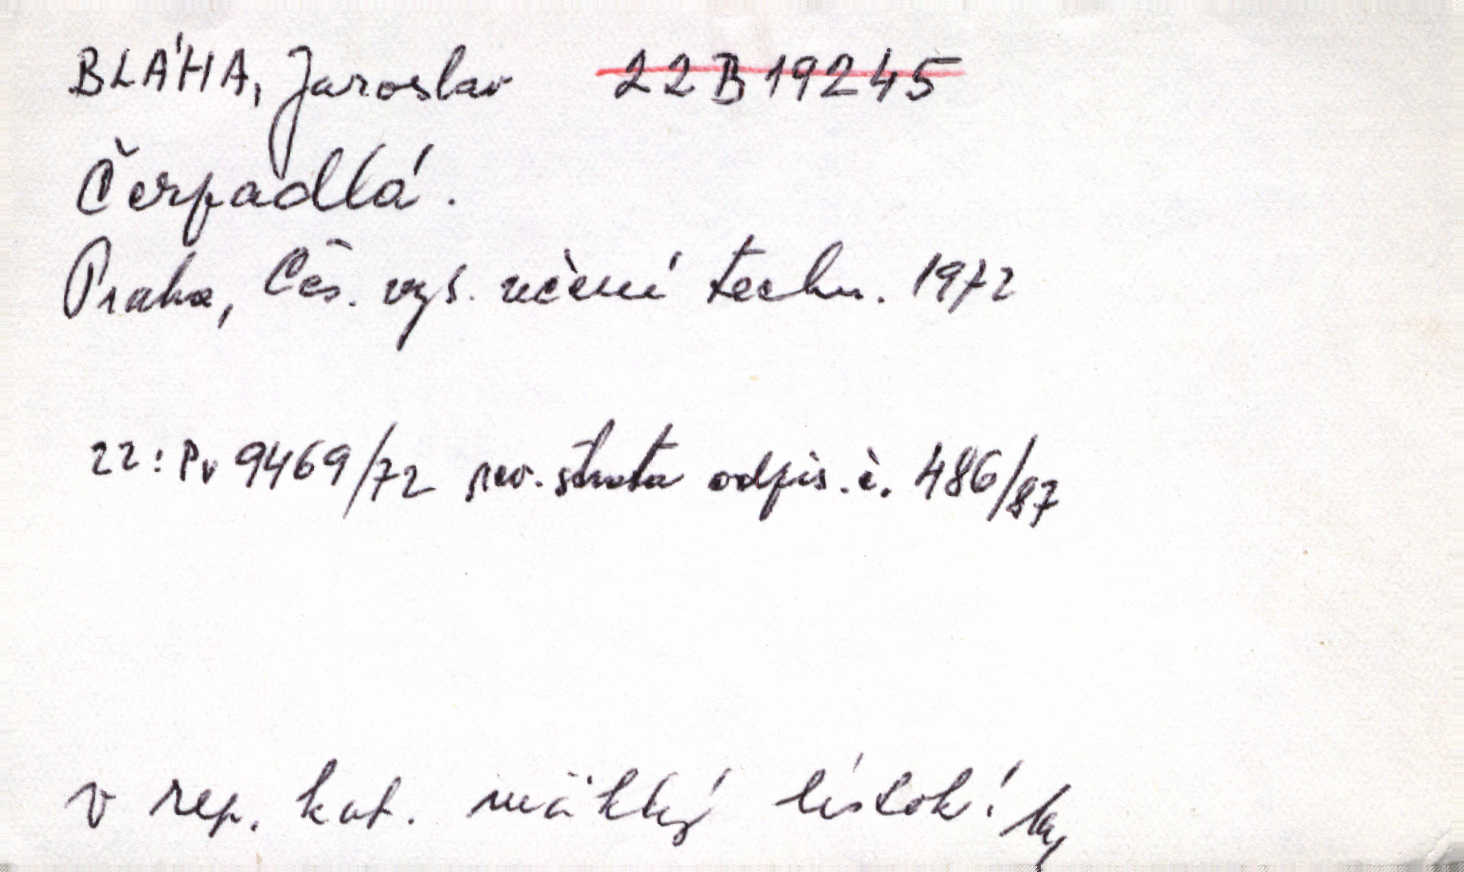 BLÁHA, Jaroslav 22B19245
Čerpadlá.
Praha, Čes. vys. učení techn. 1972
22: Pv 9469/72 rev. strata odpis. č. 486/87
v rep. kat. mäkký lístok!